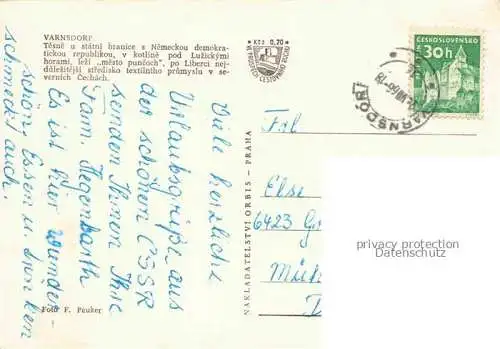 VARNSDORF
Těsně u státní hranice s Německou demokra-
tickou republikou, v kotlině pod Lužickými
horami, leží „město punčoch", po Liberci nej-
důležitější středisko textilního průmyslu v se-
verních Čechách.
Kčs 0,70
ČESKOSLOVENSKO
30h
VARNSDORF
Viele herzliche
Urlaubsgrüße aus
der schönen ČSSR
senden Ihnen Ihre
Fam. Hegenbarth
Es ist hier wunder-
schön, Essen u. Trinken
schmeckt auch.
NAKLADATELSTVÍ ORBIS - PRAHA
Frl
Else
6423
privacy protection
Datenschutz
Foto F. Peuker